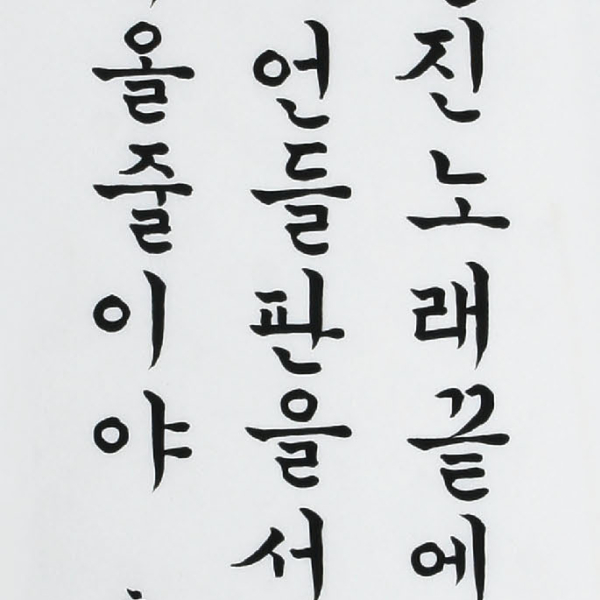 진노래끝에
언들판을서
올줄이야